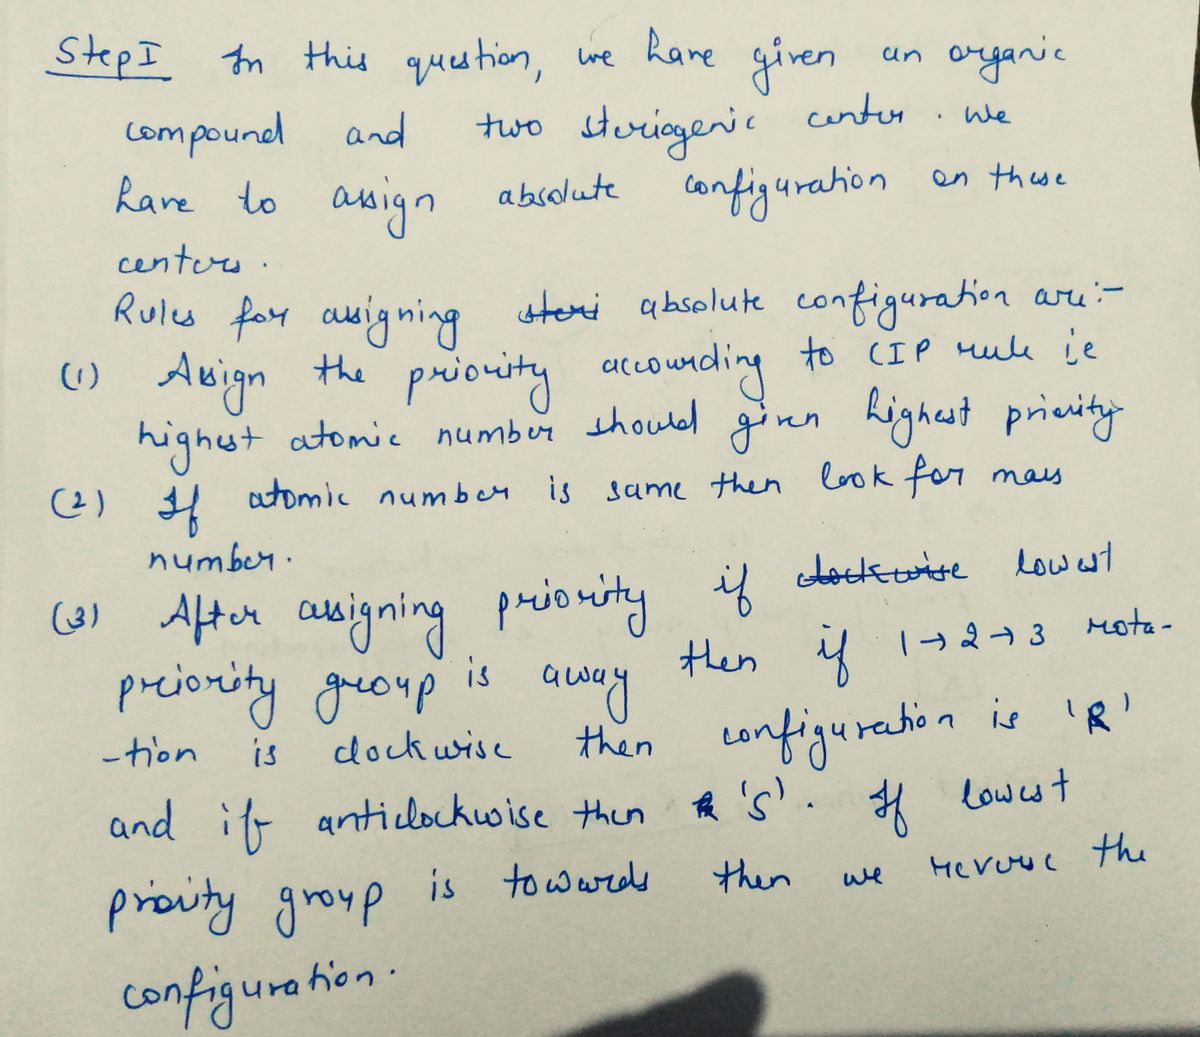 Step I In this question, we have given an organic
compound and two steriogenic center. We
have to assign absolute configuration on these
centers.
Rules for assigning steri absolute configuration are:-
(1) Assign the priority accourding to CIP rule ie
highest atomic number should given highest priority
(2) If atomic number is same then look for mass
number.
(3) After assigning priority if clockwise lowest
priority group is away then if 1→2→3 rota-
-tion is clockwise then configuration is 'R'
and if anticlockwise then 'S'. If lowest
priority group is towards then we reverse the
configuration.